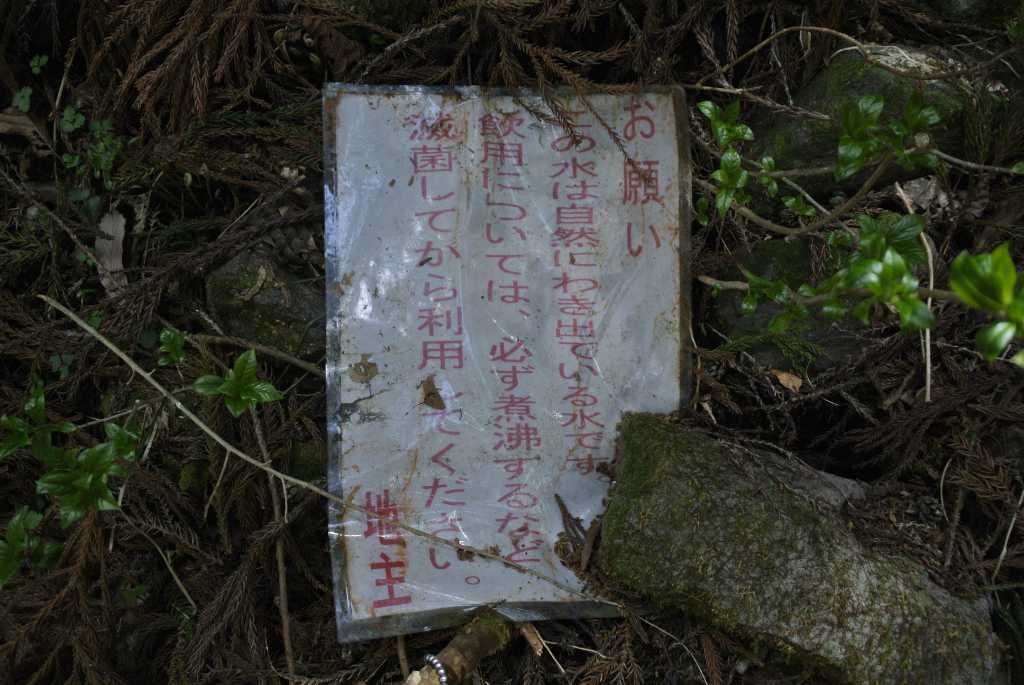 お願い
この水は自然にわき出ている水です
飲用については、必ず煮沸するなど
滅菌してから利用してください。
地主